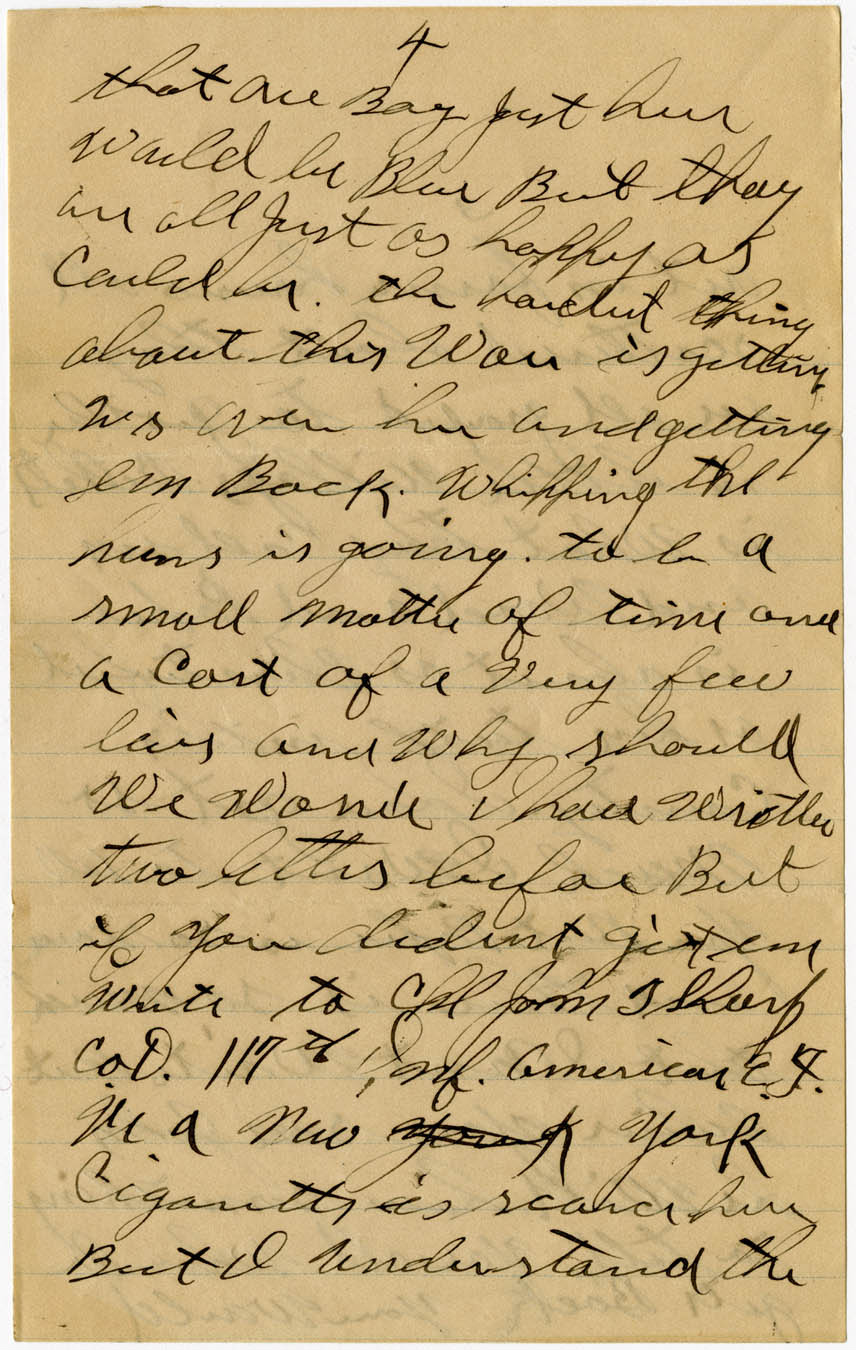 4
that our Boy Just here
Would be Blue But they
are all Just as happy as
Could be. the hardest thing
about this War is getting
us over her and getting
em Back. Whipping the
huns is going. to be a
small matter of time and
a Cost of a Very few
lives and Why should
We Worrie I have Written
two letters before But
if You dident get em
Write to Cpl John T Sharp
Co D. 117th Inf. American E. F.
Via New York York
Cigaretts is scarce here
But I understand the